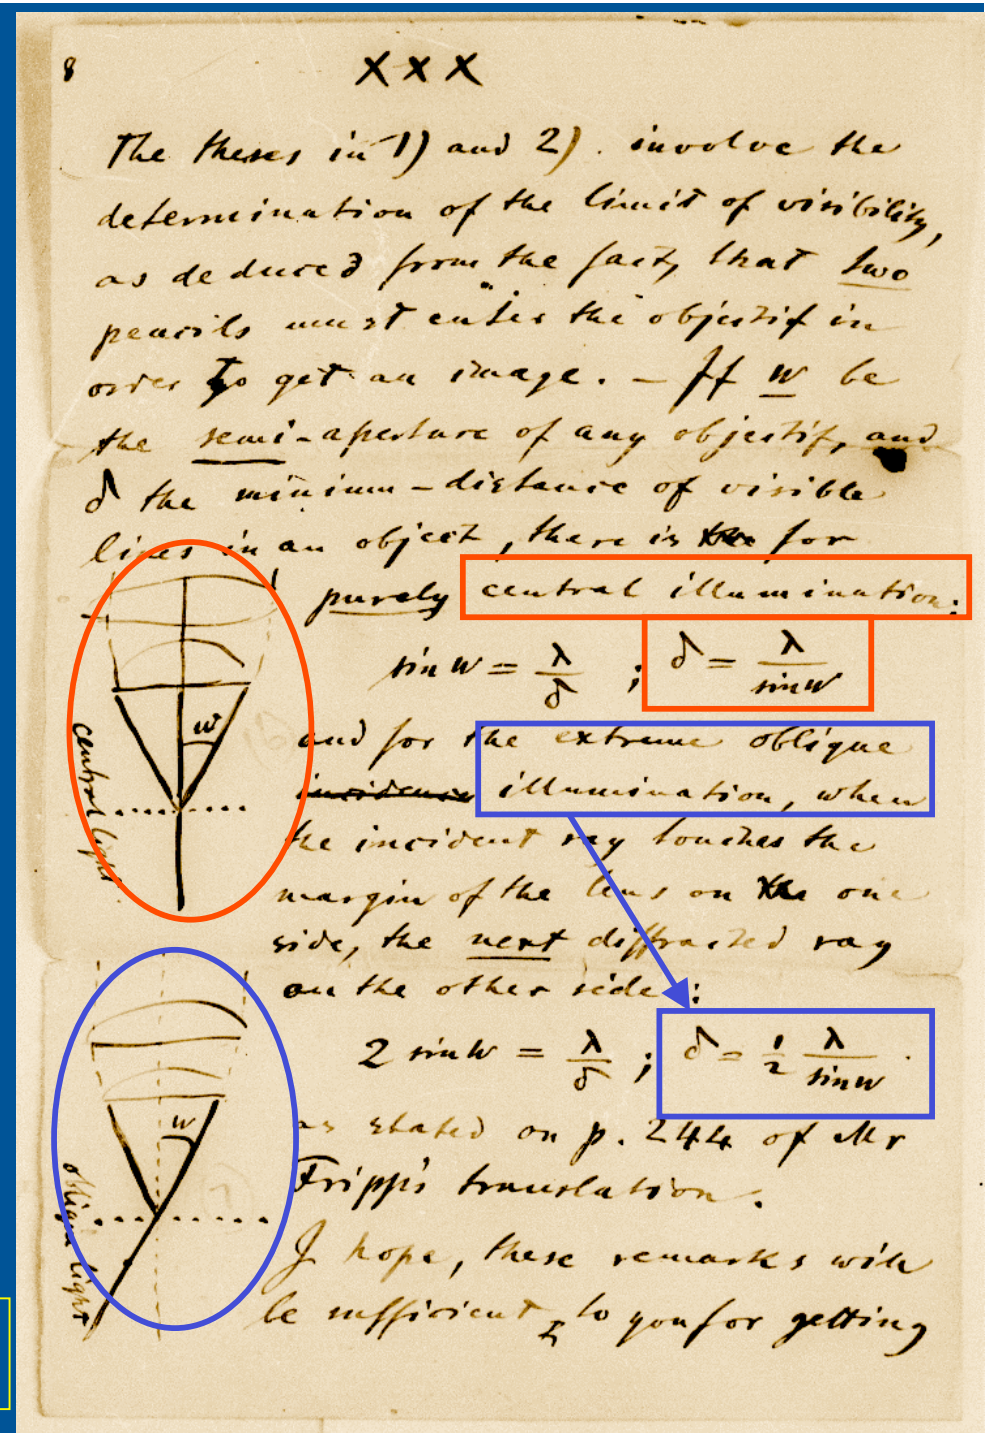 8
x x x
The theses in 1) and 2). involve the
determination of the limit of visibility,
as deduced from the fact, that two
pencils must enter the objectif in
order to get an image. – If w be
the semi-aperture of any objectif, and
δ the minimum-distance of visible
lines in an object, there is for
purely central illumination:
sin w = λ/δ ; δ = λ/sin w
and for the extreme oblique
incidence illumination, when
the incident ray touches the
margin of the lens on the one
side, the next diffracted ray
on the other side:
2 sin w = λ/δ ; δ = 1/2 λ/sin w
as stated on p. 244 of Mr
Fripp's translation.
I hope, these remarks will
be sufficient to you for getting
w
central light
w
oblique light